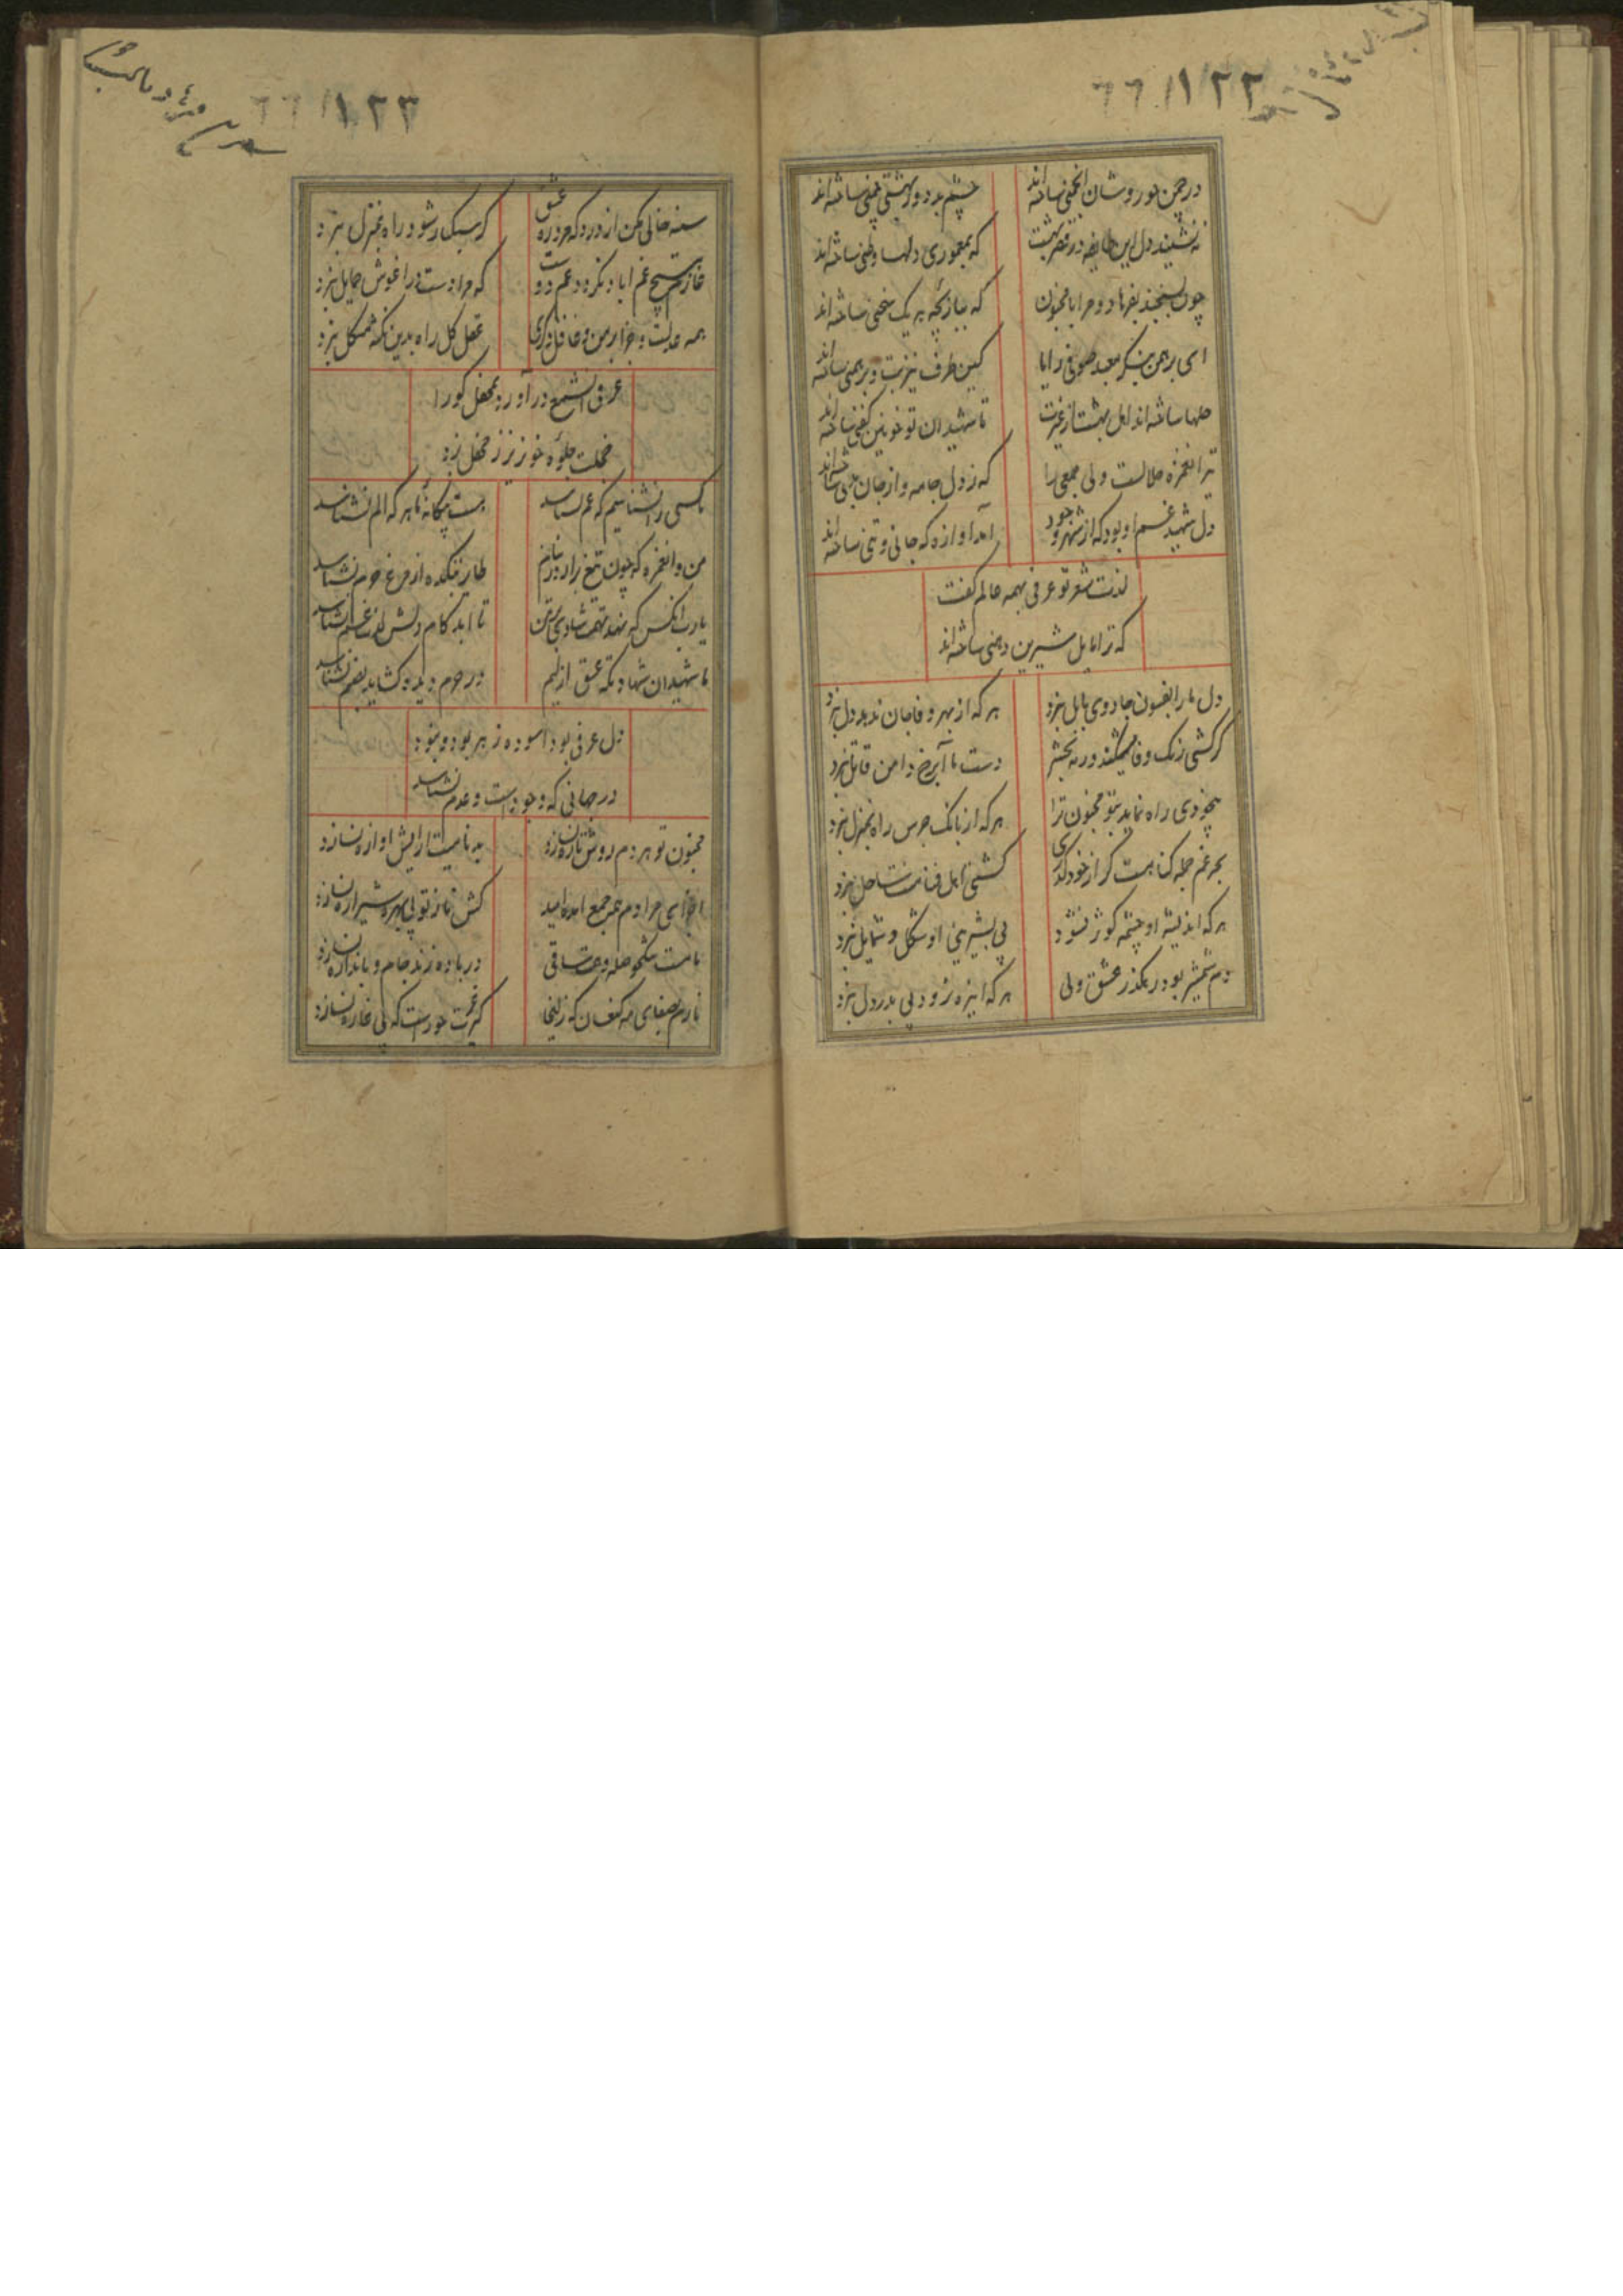 ٦٦ /١٢٢
در چمن حور وشان انجمنی ساخته اند
چشم بد دور بهشتی چمنی ساخته اند
ننشیند دل این طایفه در قصر بهشت
که بمعموری دلها وطنی ساخته اند
چون نسنجند بفرهاد و مرا با مجنون
که ببازیچه بهر یک سخنی ساخته اند
ای برهمن بنگر معبد صوفی و ریا
کین طرف نیز بت و برهمنی ساخته اند
حلها ساخته اند اهل بهشت از غیرت
تا شهیدان تو خونین کفنی ساخته اند
ترا غمزه حلالست ولی جمعی را
که ز دل جامه و از جان بدنی ساخته اند
دل شهید غم او بود که از شهر وجود
آمد آوازه که جانی و تنی ساخته اند
لذت شعر تو عرفی بهمه عالم گفت
که ترا بابل شیرین دهنی ساخته اند
دل ما را بفسون جادوی بابل نبرد
هر که از بهر وفا جان ندهد دل نبرد
گر کشی زنگ وفا میشکند ورنه بحشر
دست ما آبرخ دامن قاتل نبرد
بیخودی راه نماید بتو مجنون ترا
هر که از بانک جرس راه بمنزل نبرد
بحر غم جمله کنارست گر از خود گذری
کشتی اهل فنا منت ساحل نبرد
هر که اندیشه او چشمه کوثر نشود
پی بشیرینی او شکل و شمایل نبرد
دم شمشیر بود رهگذر عشق ولی
هر که این ره نرود پی بدر دل نبرد
٦٦ /١٢٣
سینه خالی مکن از درد که در ره عشق
گر سبک رشو و راه بمنزل نبرد
غم اباد نگردد غم دوست
که مرا دست در اغوش حمایل نبرد
همه عدلست جزا بر من و غافل دگری
عقل کل راه بدین نکته مشکل نبرد
عرفی ار شمع در آورد بمحفل کو را
خجلت جلوه خونریز ز محفل نبرد
ما کسی را نشناسیم که غم نشناسد
هست بیگانه ما هر که الم نشناسد
من و ان غمزه که چون تیغ برارد از ناز
طایر بتکده از مرغ حرم نشناسد
یارب انکس که نهد تهمت شادی بر من
تا ابد کام دلش لذت غم نشناسد
ما شهیدان شهادتکه عشق ازلیم
در حرم دیده گشاید صنم نشناسد
دل عرفی بود اسوده ز هر بود و نبود
در جهانی که وجودست و عدم نشناسد
مجنون تو هر دم روش تازه نسازد
بدنامیت ارایش اوازه نسازد
اجزای مرادم همه جمع امده امید
کش ناز تو بی بهره شیرازه نسازد
ما مست تنکحوصله و مست ساقی
در باده زند جام و باندازه نسازد
نازم بصفای مه کنعان که زلیخا
گر غیرت حورست که بی غازه نسازد